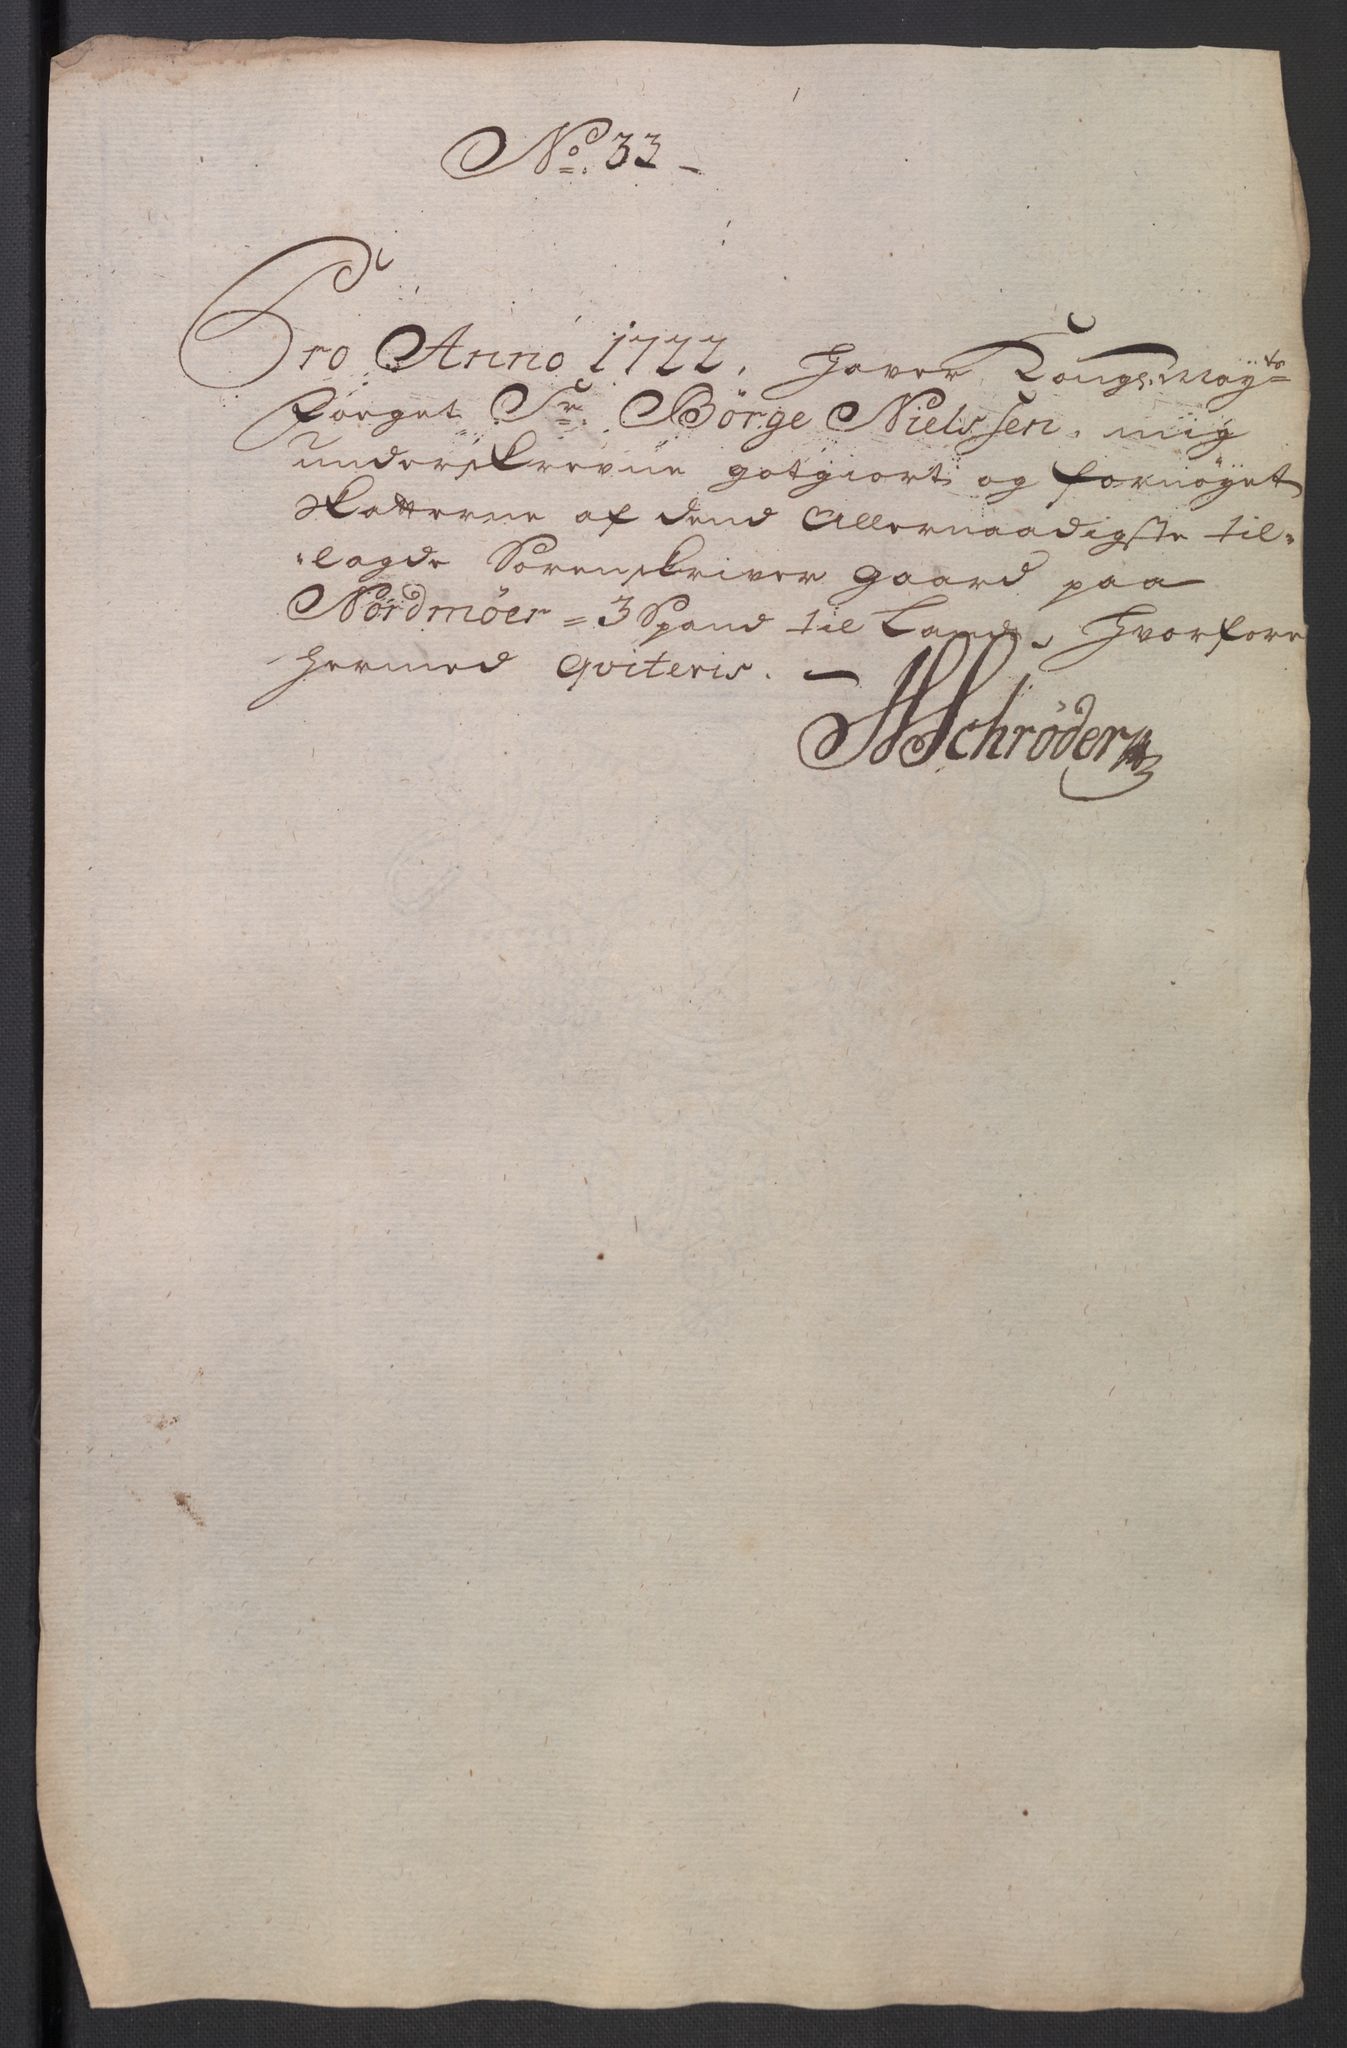 No. 33 -
Pro Anno 1722. Haver Kongs. May.ts
Foeget Sr. Börge Nielssen, mig
underskrevne gotgiort og fornöyet
Skatterne af dend Allernaadigste til-
-lagde Sorenskriver gaard paa
Nordmöer = 3 Spand til Land, hvorfore
hermed qviteris. -
Schröder